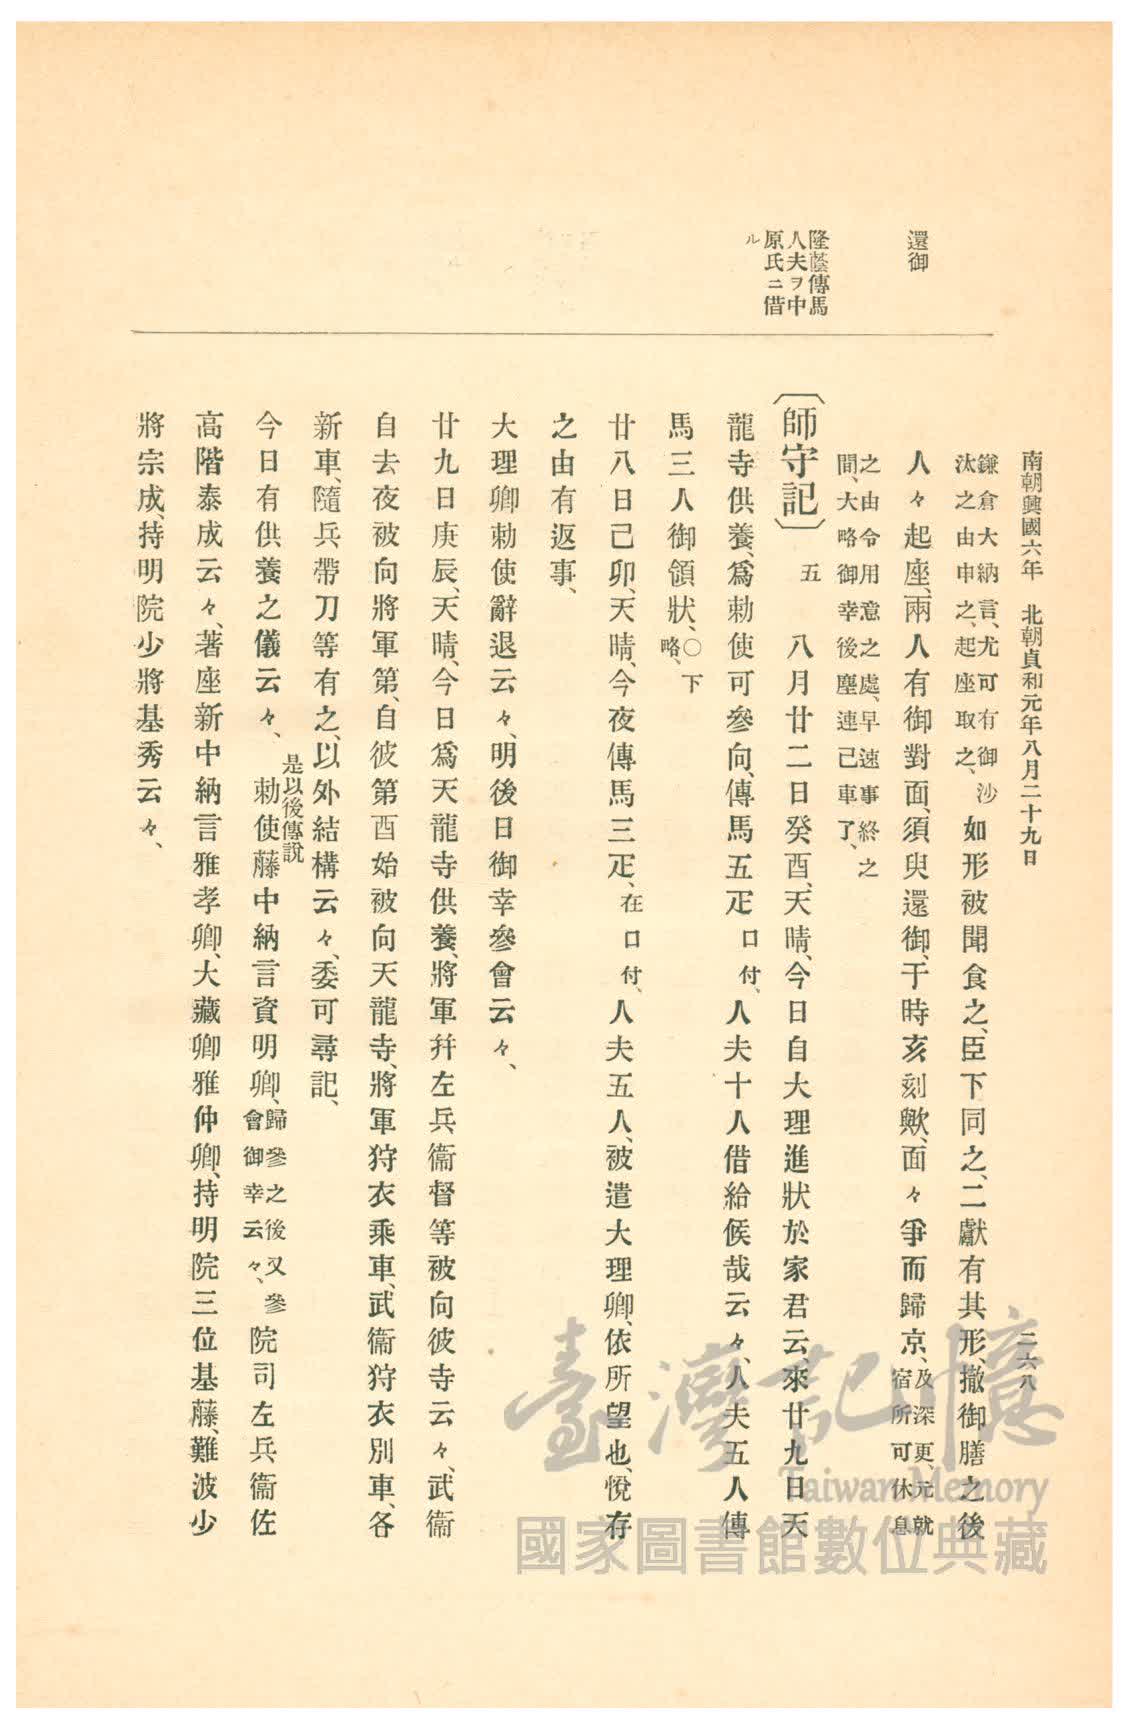 南朝興國六年　北朝貞和元年八月二十九日
二六八
還御
隆蔭傳馬
人夫ヲ中
原氏ニ借
ル
鎌倉大納言、尤可有御沙
汰之由申之、起座取之、
如形被聞食之、臣下同之、二獻有其形、撤御膳之後
人々起座、兩人有御對面、須臾還御、于時亥刻歟、面々爭而歸京、
及深更、元就
宿所可休息
之由令用意之處、早速事終之
間、大略御幸後塵連己車了、
〔師守記〕　五　八月廿二日癸酉、天晴、今日自大理進狀於家君云、來廿九日天
龍寺供養、爲勅使可參向、傳馬五疋口付、人夫十人借給候哉云々、人夫五人傳
馬三人御領狀、〇下略、
廿八日己卯、天晴、今夜傳馬三疋、在口付、人夫五人、被遣大理卿、依所望也、悅存
之由有返事、
大理卿勅使辭退云々、明後日御幸參會云々、
廿九日庚辰、天晴、今日爲天龍寺供養、將軍幷左兵衞督等被向彼寺云々、武衞
自去夜被向將軍第、自彼第酉始被向天龍寺、將軍狩衣乘車、武衞狩衣別車、各
新車、隨兵、帶刀等有之、以外結構云々、委可尋記、
是以後傳說
今日有供養之儀云々、勅使藤中納言資明卿、歸參之後又參會御幸云々、院司左兵衞佐
高階泰成云々、著座新中納言雅孝卿、大藏卿雅仲卿、持明院三位基藤、難波少
將宗成、持明院少將基秀云々、
臺灣記憶
Taiwan Memory
國家圖書館數位典藏